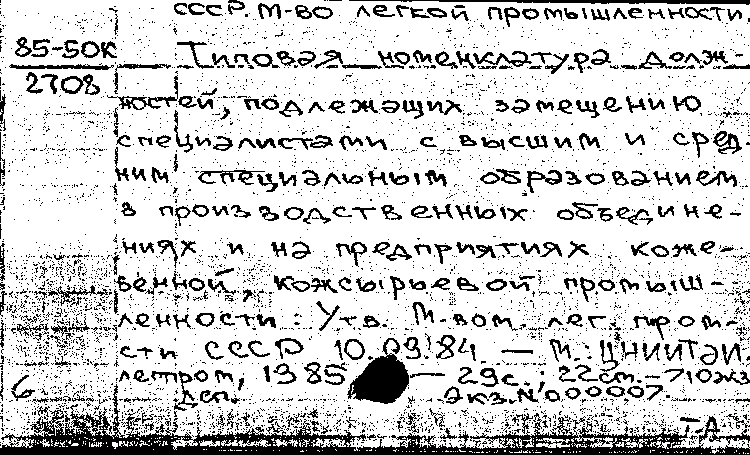 СССР. М-во легкой промышленности.
85-50К Типовая номенклатура долж-
2708
ностей, подлежащих замещению
специалистами с высшим и сред-
ним специальным образованием
в производственных объедине-
ниях и на предприятиях коже-
венной, кожсырьевой промыш-
ленности: Утв. М-вом. лег. пром-
сти СССР 10.09.84. — М.: ЦНИИТЭИ.
легпром, 1985 — 29с.; 22см. — 710экз
6 Дсп. Экз.N000007.
Т-А